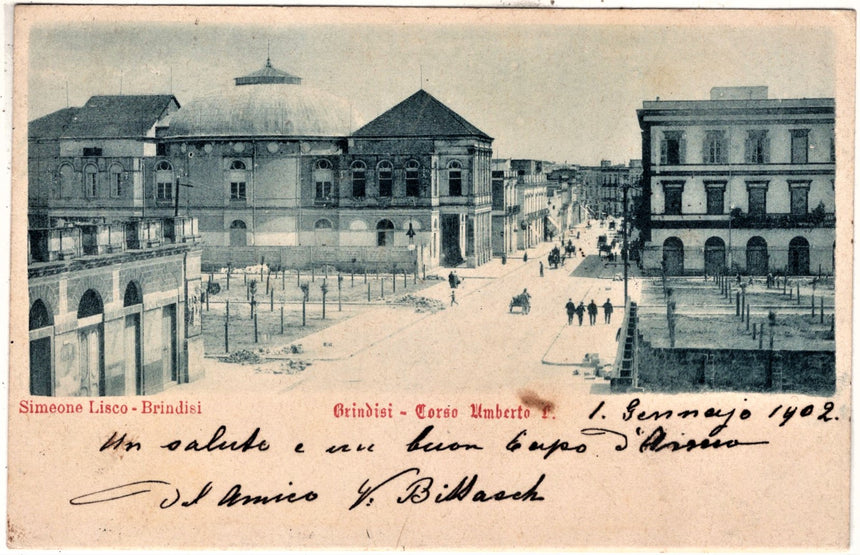 Simeone Lisco - Brindisi
Brindisi - Corso Umberto I.
1. Gennajo 1902.
Un saluto e un buon Capo d'Anno
Dl Amico V.